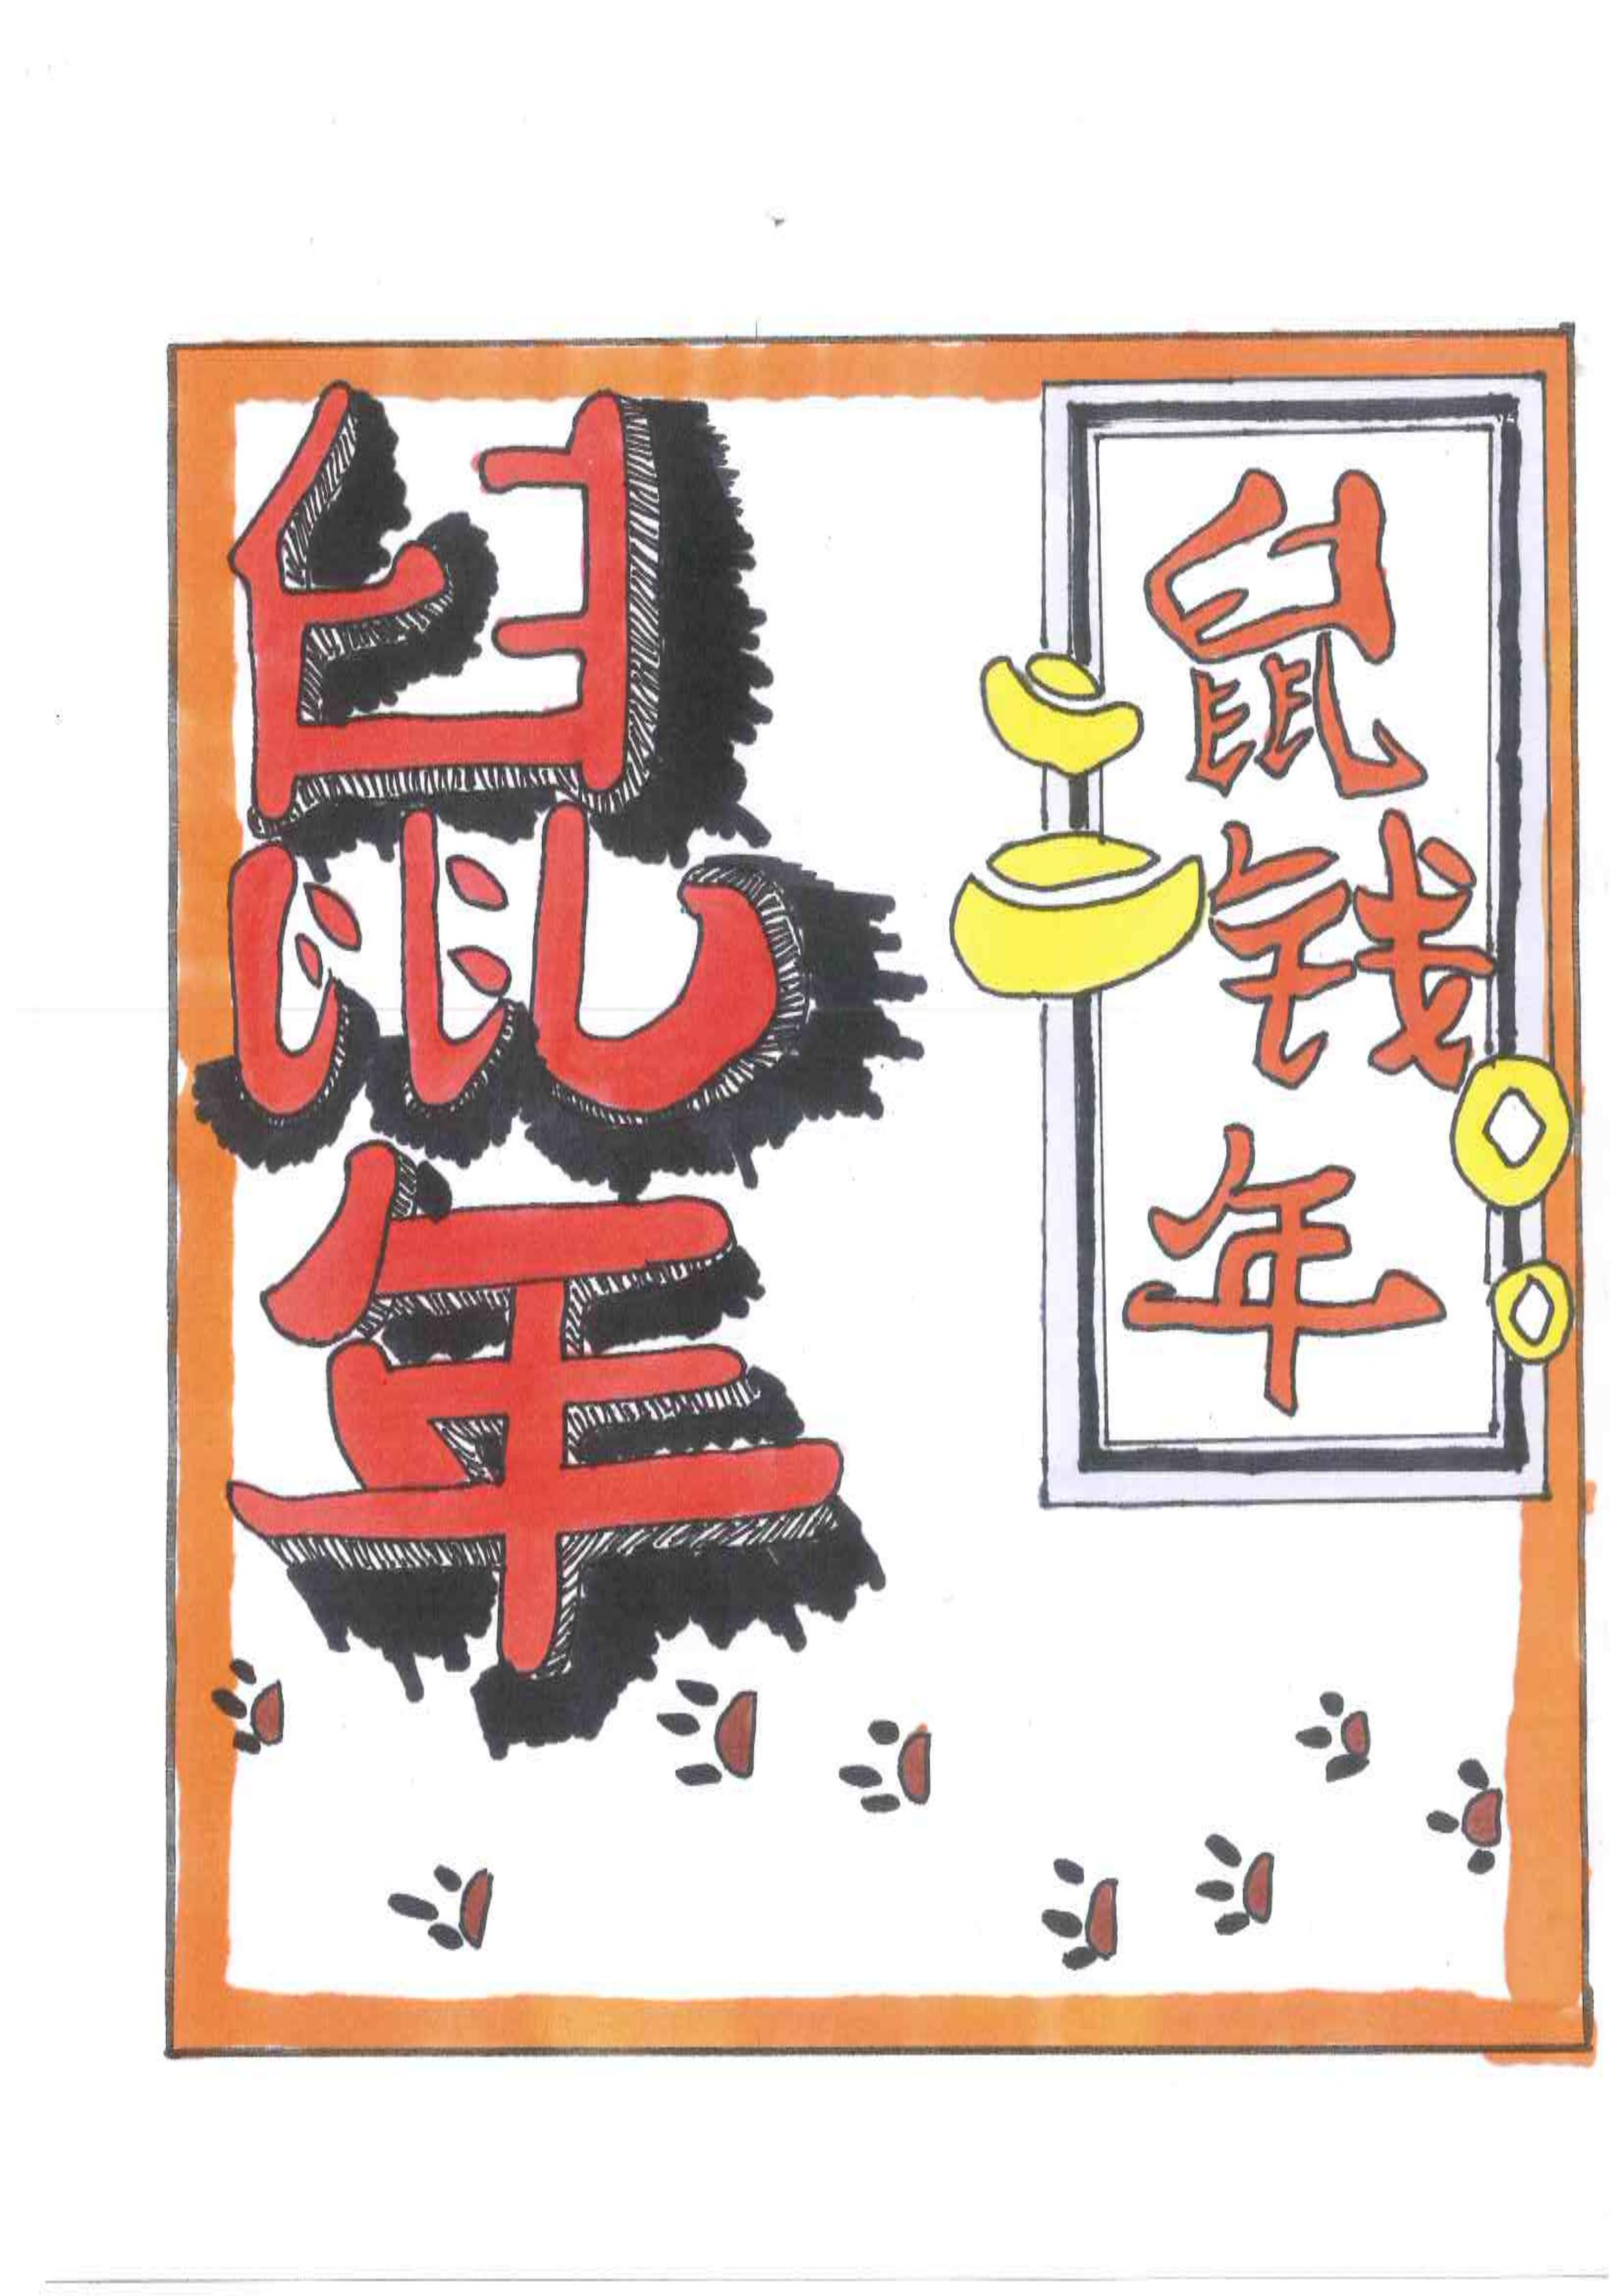 鼠年
鼠钱年